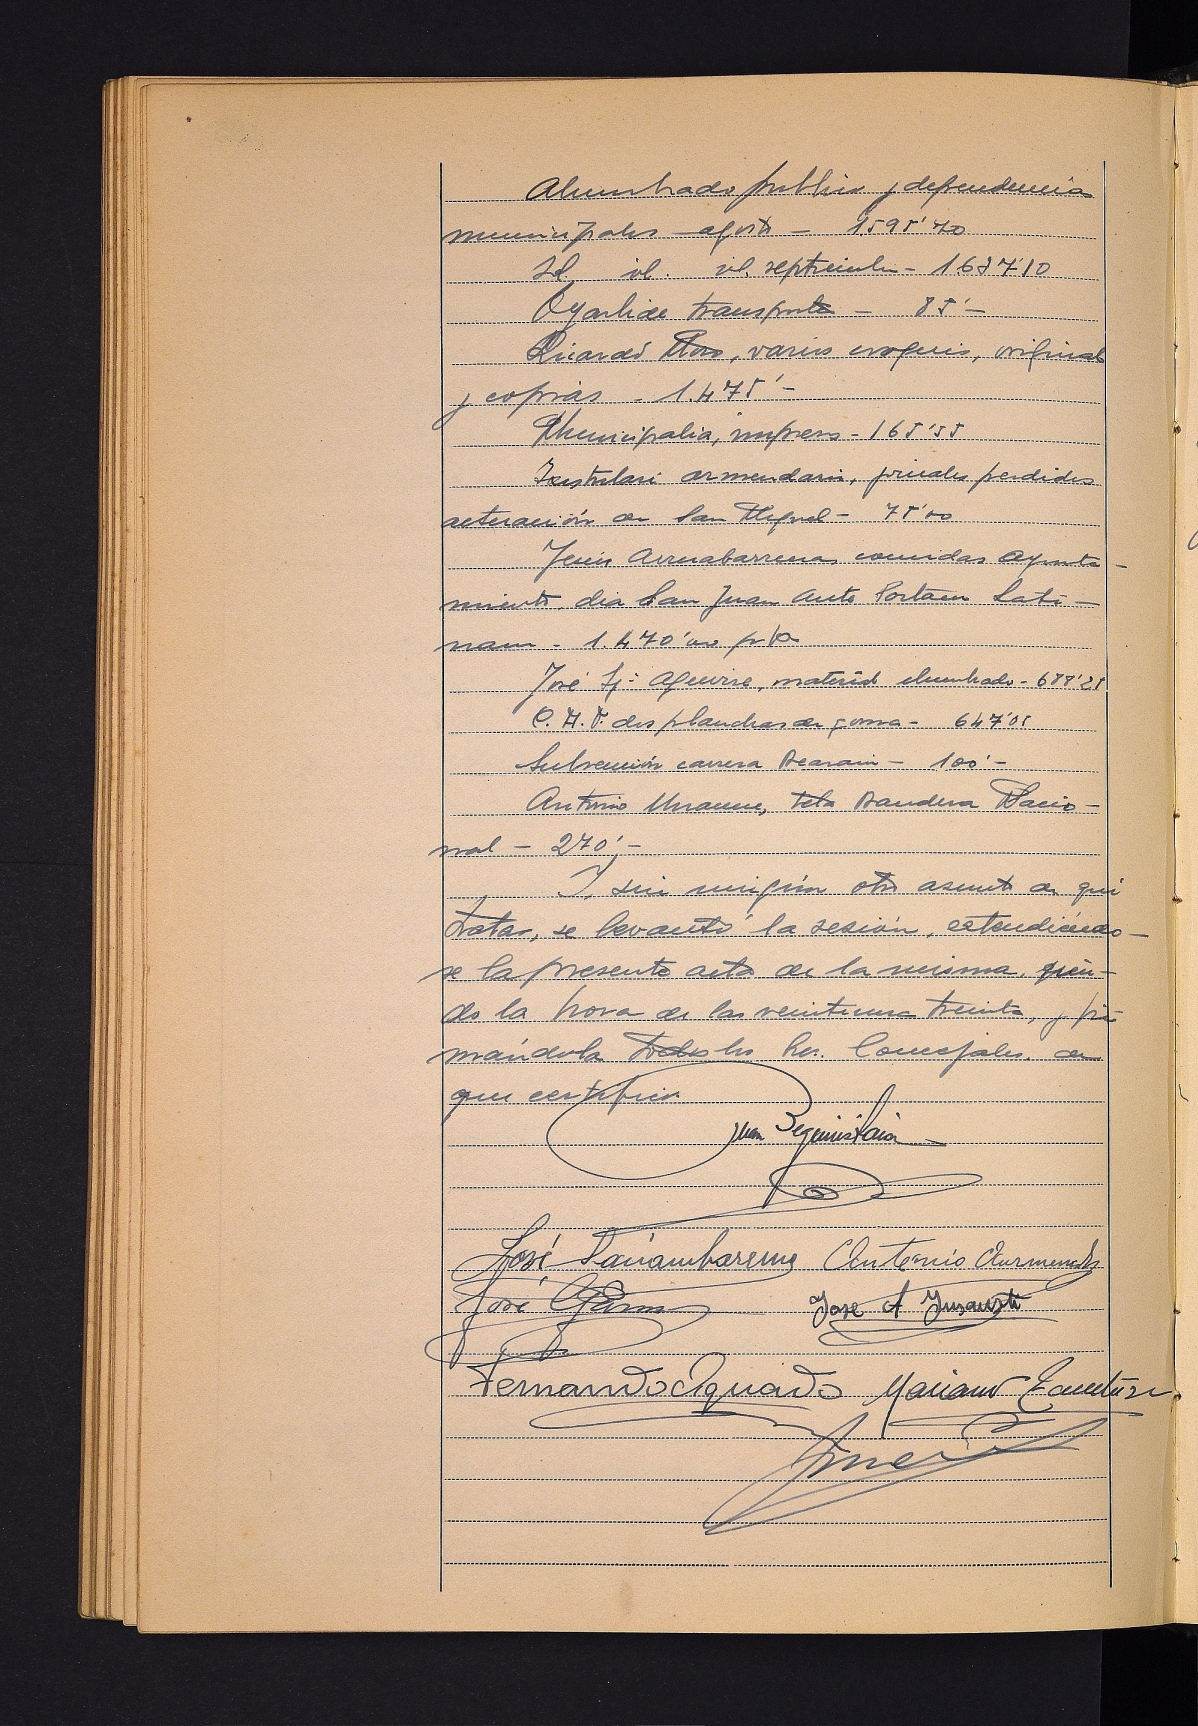 Alumbrado publico y dependencia
municipales - agosto - 1595'70
Id. id. id. septiembre - 1637'10
Oyarbide transporte - 85'-
Ricardo varios croquis, original
y copias - 1.475'-
Municipalia, impresos - 165'55
jornales perdidos
actuación de San Miguel - 75'00
Jesús Arruabarrena comidas Ayunta-
miento, dia San Juan Ante Portam Lati-
nam - 1.470'00 pts
José Aguirre, material alumbrado - 688'25
C.A.F. dos planchas de goma - 647'05
Subvención carrera Beasain - 100'-
Antonio tela Bandera Nacio-
nal - 270'-
Y, sin ningún otro asunto de que
tratar, se levantó la sesión, extendiéndo-
se la presente acta de la misma, sién-
do la hora de las veintiuna treinta, y fir
mándola todos los Srs. Concejales, de
que certifico.
Juan Beguiristain
José Antonio
José José A
Fernando Aguado Mariano